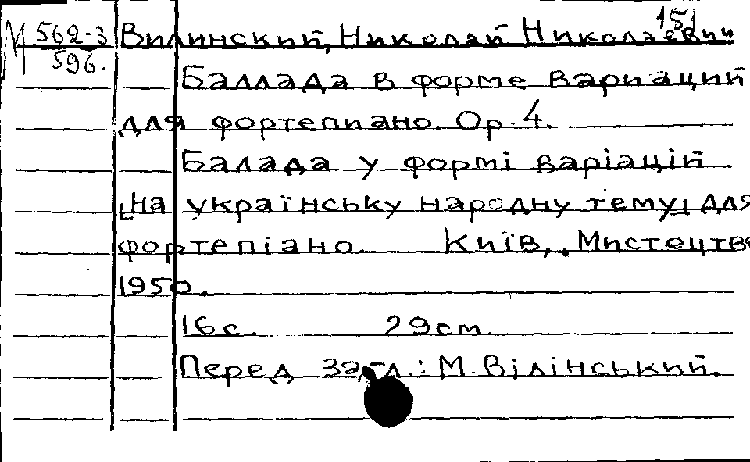 151
М 562-3 Вилинский, Николай Николаевич
596.
Баллада в форме вариаций
для фортепиано. Ор. 4.
Балада у формі варіацій
[на українську народну тему] для
фортепіано. Київ, Мистецтво
1950.
16 с. 29 cm
Перед загл.: М. Вілінський.